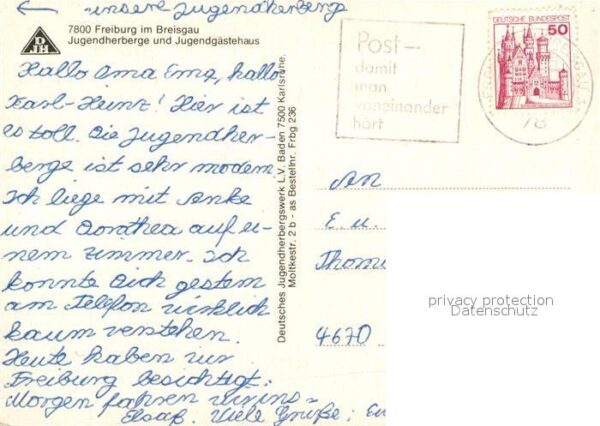 ← unsere Jugendherberge
DJH
7800 Freiburg im Breisgau
Jugendherberge und Jugendgästehaus
Hallo Oma Erna, hallo
Karl-Heinz! Hier ist
es toll. Die Jugendher-
berge ist sehr modern.
Ich liege mit Anke
und Dorothea auf ei-
nem Zimmer. Ich
konnte Dich gestern
am Telefon wirklich
kaum verstehen.
Heute haben wir
Freiburg besichtigt.
Morgen fahren wir ins
Elsaß. Viele Grüße:
Deutsches Jugendherbergswerk L.V. Baden 7500 Karlsruhe,
Moltkestr. 2 b - as Bestellnr. Frbg 236
Post –
damit
man
voneinander
hört
DEUTSCHE BUNDESPOST
50
78
An
E. u.
4670
privacy protection
Datenschutz